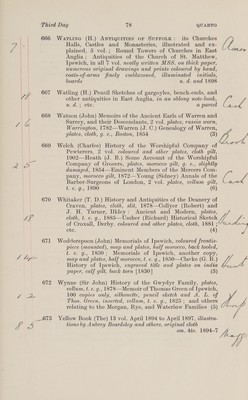 Third Day 78 QUARTO
666 WATLING (H.) ANTIQUITIES OF SUFFOLK: its Churches
Halls, Castles and Monasteries, illustrated and ex-
plained, 3 vol.; Round Towers of Churches in East
Anglia; Antiquities of the Church of St. Matthew,
Ipswich, in all 7 vol. mostly written MSS. on thick paper,
numerous original drawings and prints coloured by hand,
coats-of-arms finely emblazoned, illuminated initials,
boards v. d. and 1898
667 Watling (H.) Pencil Sketches of gargoyles, bench-ends, and
other antiquities in East Anglia, in an oblong note-book,
n. d.; etc. a parcel
668 Watson (John) Memoirs of the Ancient Earls of Warren and
Surrey, and their Descendants, 2 vol. plates, russia worn,
Warrington, 1782—Warren (J. C.) Genealogy of Warren,
plates, cloth, g. e., Boston, 1854 (3)
669 Welch (Charles) History of the Worshipful Company of
Pewterers, 2 vol. coloured and other plates, cloth gilt,
1902—Heath (J. B.) Some Account of the Worshipful
Company of Grocers, plates, morocco gilt, g. e., slightly
damaged, 1854—Eminent Members of the Mercers Com-
pany, morocco gilt, 1872—Young (Sidney) Annals of the
Barber-Surgeons of London, 2 vol. plates, vellum gilt,
t. e. g., 1890 (6)
670 Whitaker (T. D.) History and Antiquities of the Deanery of
Craven, plates, cloth, 4to, 1878—Collyer (Robert) and
J. H. Turner, Ilkley: Ancient and Modern, plates,
cloth, t. e. g., 1885—Usher (Richard) Historical Sketch
of Croxall, Derby, coloured and other plates, cloth, 1881;
etc. (4)
671 Wodderspoon (John) Memorials of Ipswich, coloured frontis-
piece (mounted), map and plates, half morocco, back hooked,
t. e. g., 1850; Memorials of Ipswich, another copy,
map and plates, half morocco, t. e. g., 1850—Clarke (G. R.)
History of Ipswich, engraved title and plates on india
paper, calf gilt, back torn [1830] (3)
672 Wynne (Sir John) History of the Gwydyr Family, plates,
vellum, t. e. g., 1878—Memoir of Thomas Green of Ipswich,
100 copies only, silhouette, pencil sketch and A. L. of
Thos. Green, inserted, vellum, t. e. g., 1825; and others
relating to the Morgan, Rye, and Waterlow Families (5)
673 Yellow Book (The) 13 vol. April 1894 to April 1897, illustra-
tions by Aubrey Beardsley and others, original cloth
sm. 4to. 1894-7